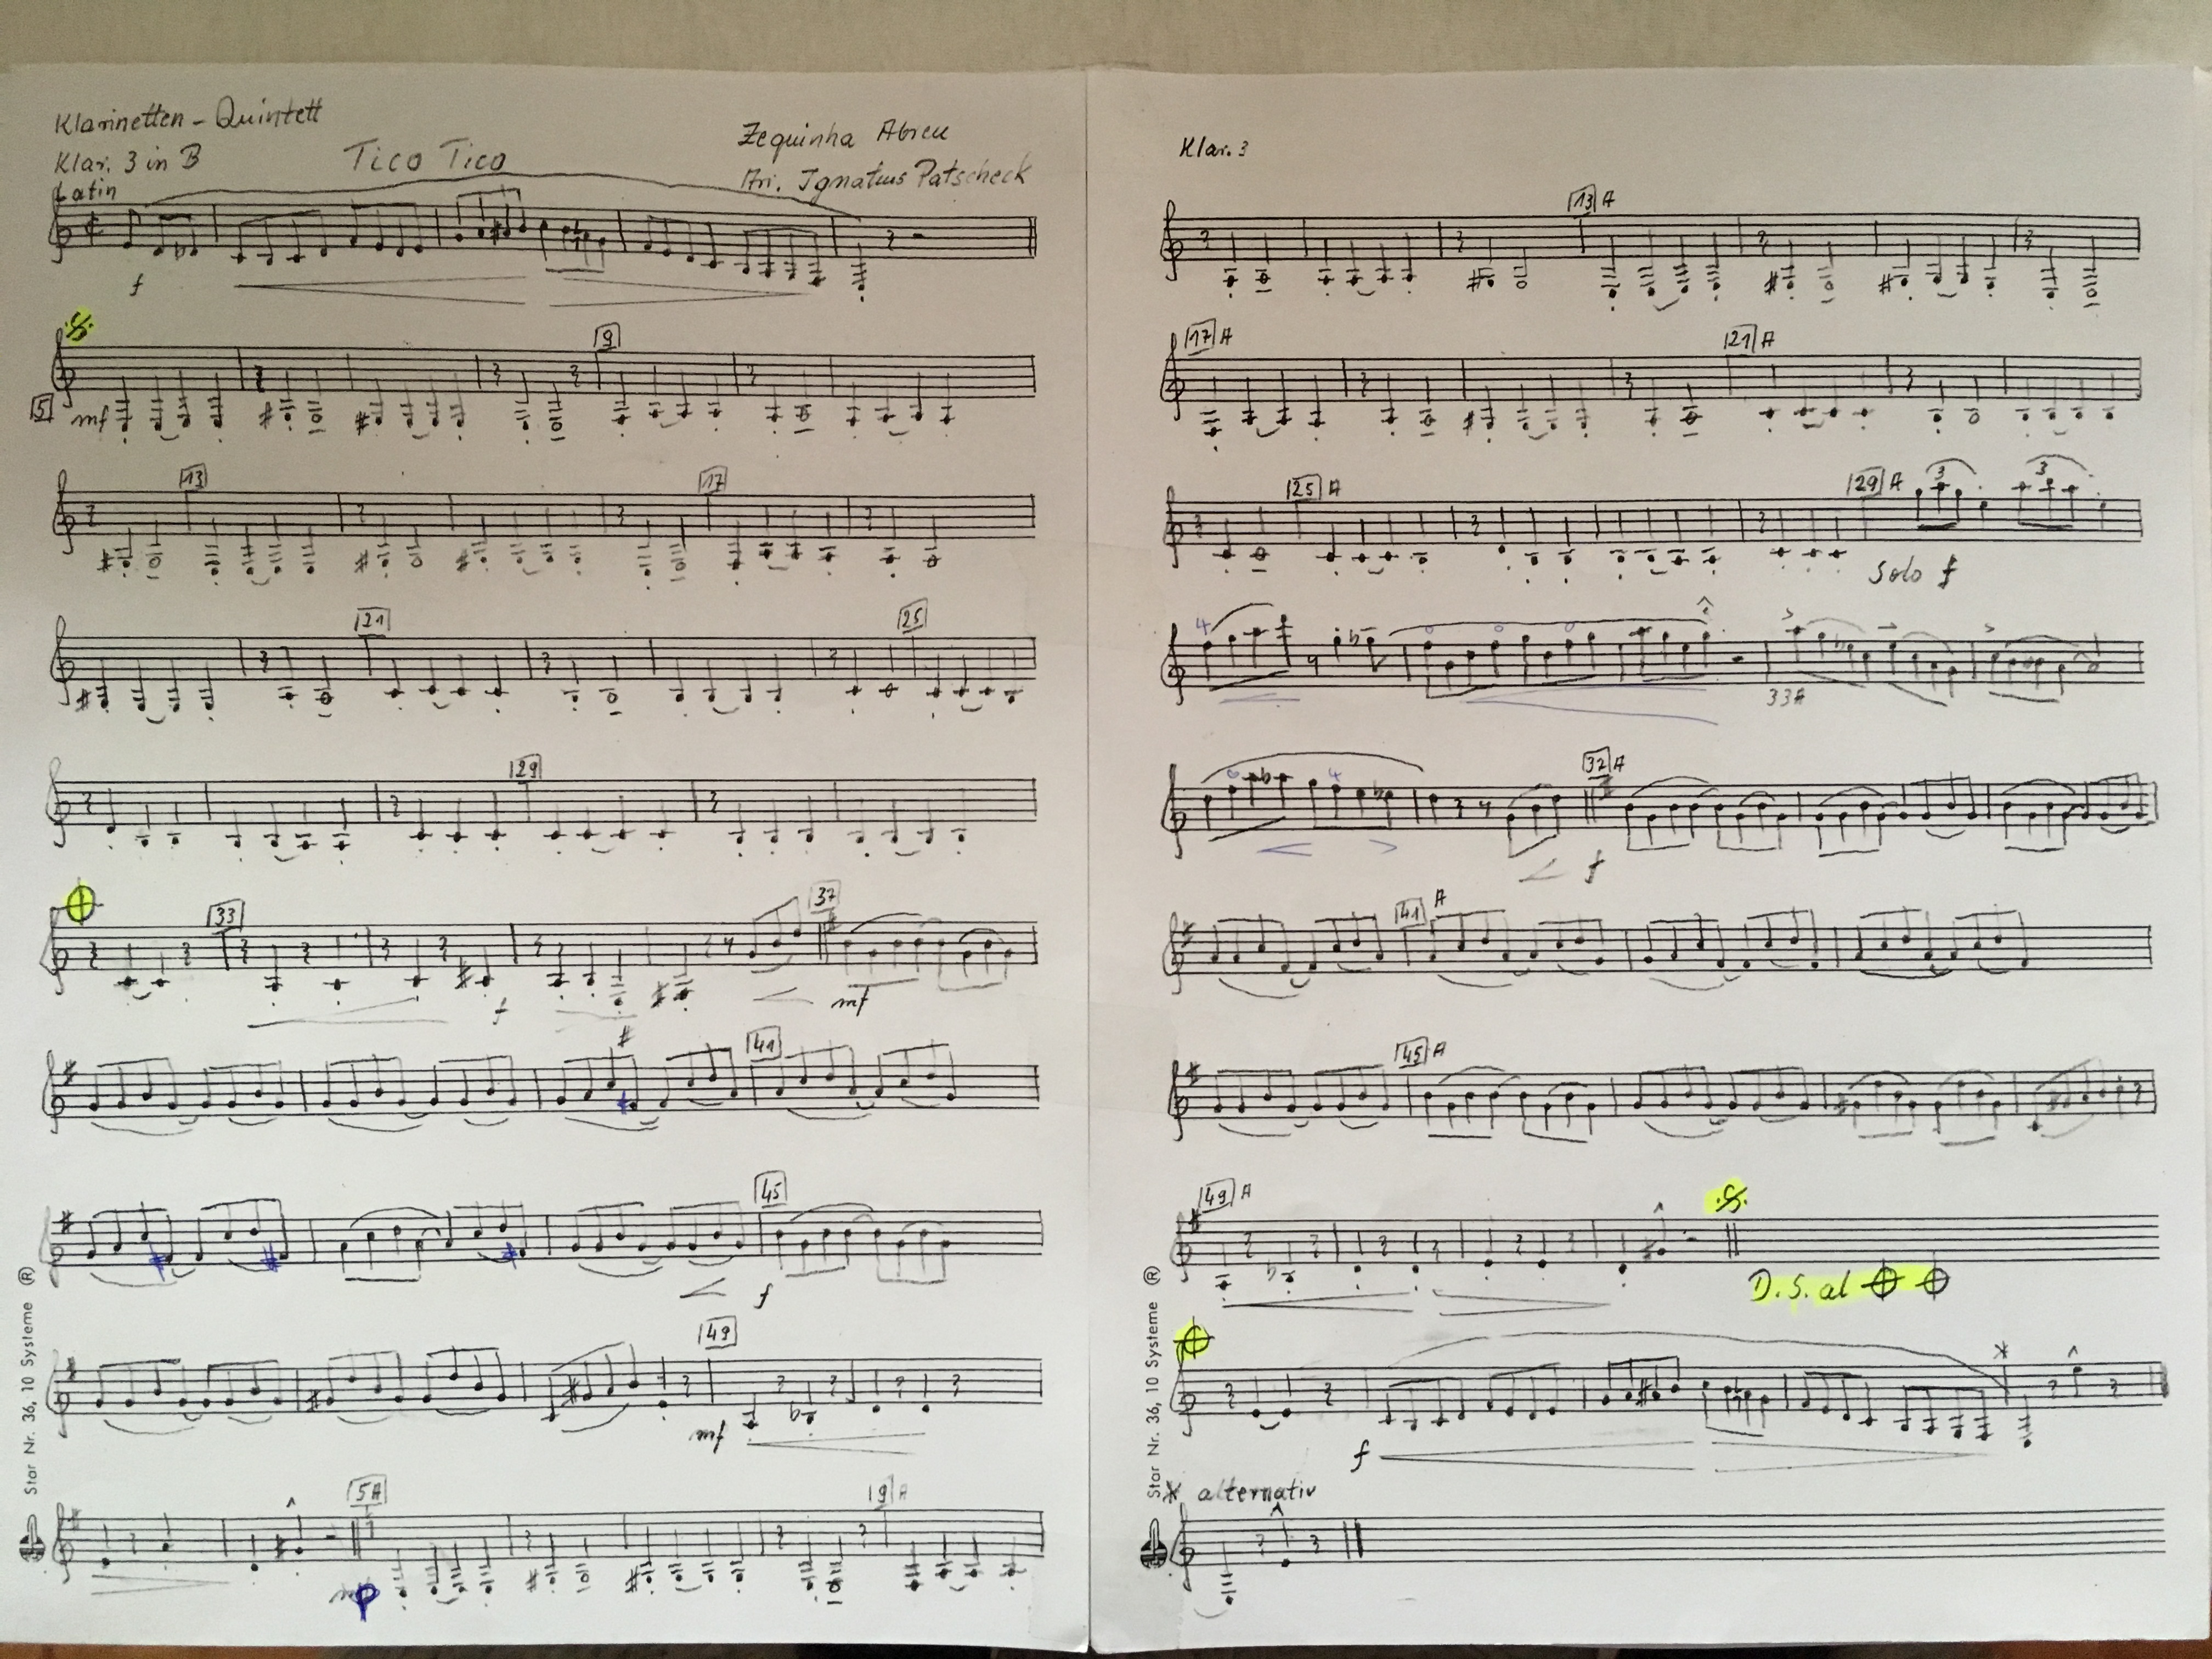 Klarinetten - Quintett
Klar. 3 in B
Tico Tico
Zequinha Abreu
Arr. Ignatius Patscheck
Latin
f
5
mf
9
13
17
21
25
29
33
f
37
mf
41
45
f
49
mf
5A
p
9A
Star Nr. 36, 10 Systeme ®
Klar. 3
13 A
17 A
21 A
25 A
29 A
3
3
Solo f
4
33A
4
32 A
f
41 A
45 A
49 A
D.S. al
f
* alternativ
Star Nr. 36, 10 Systeme ®